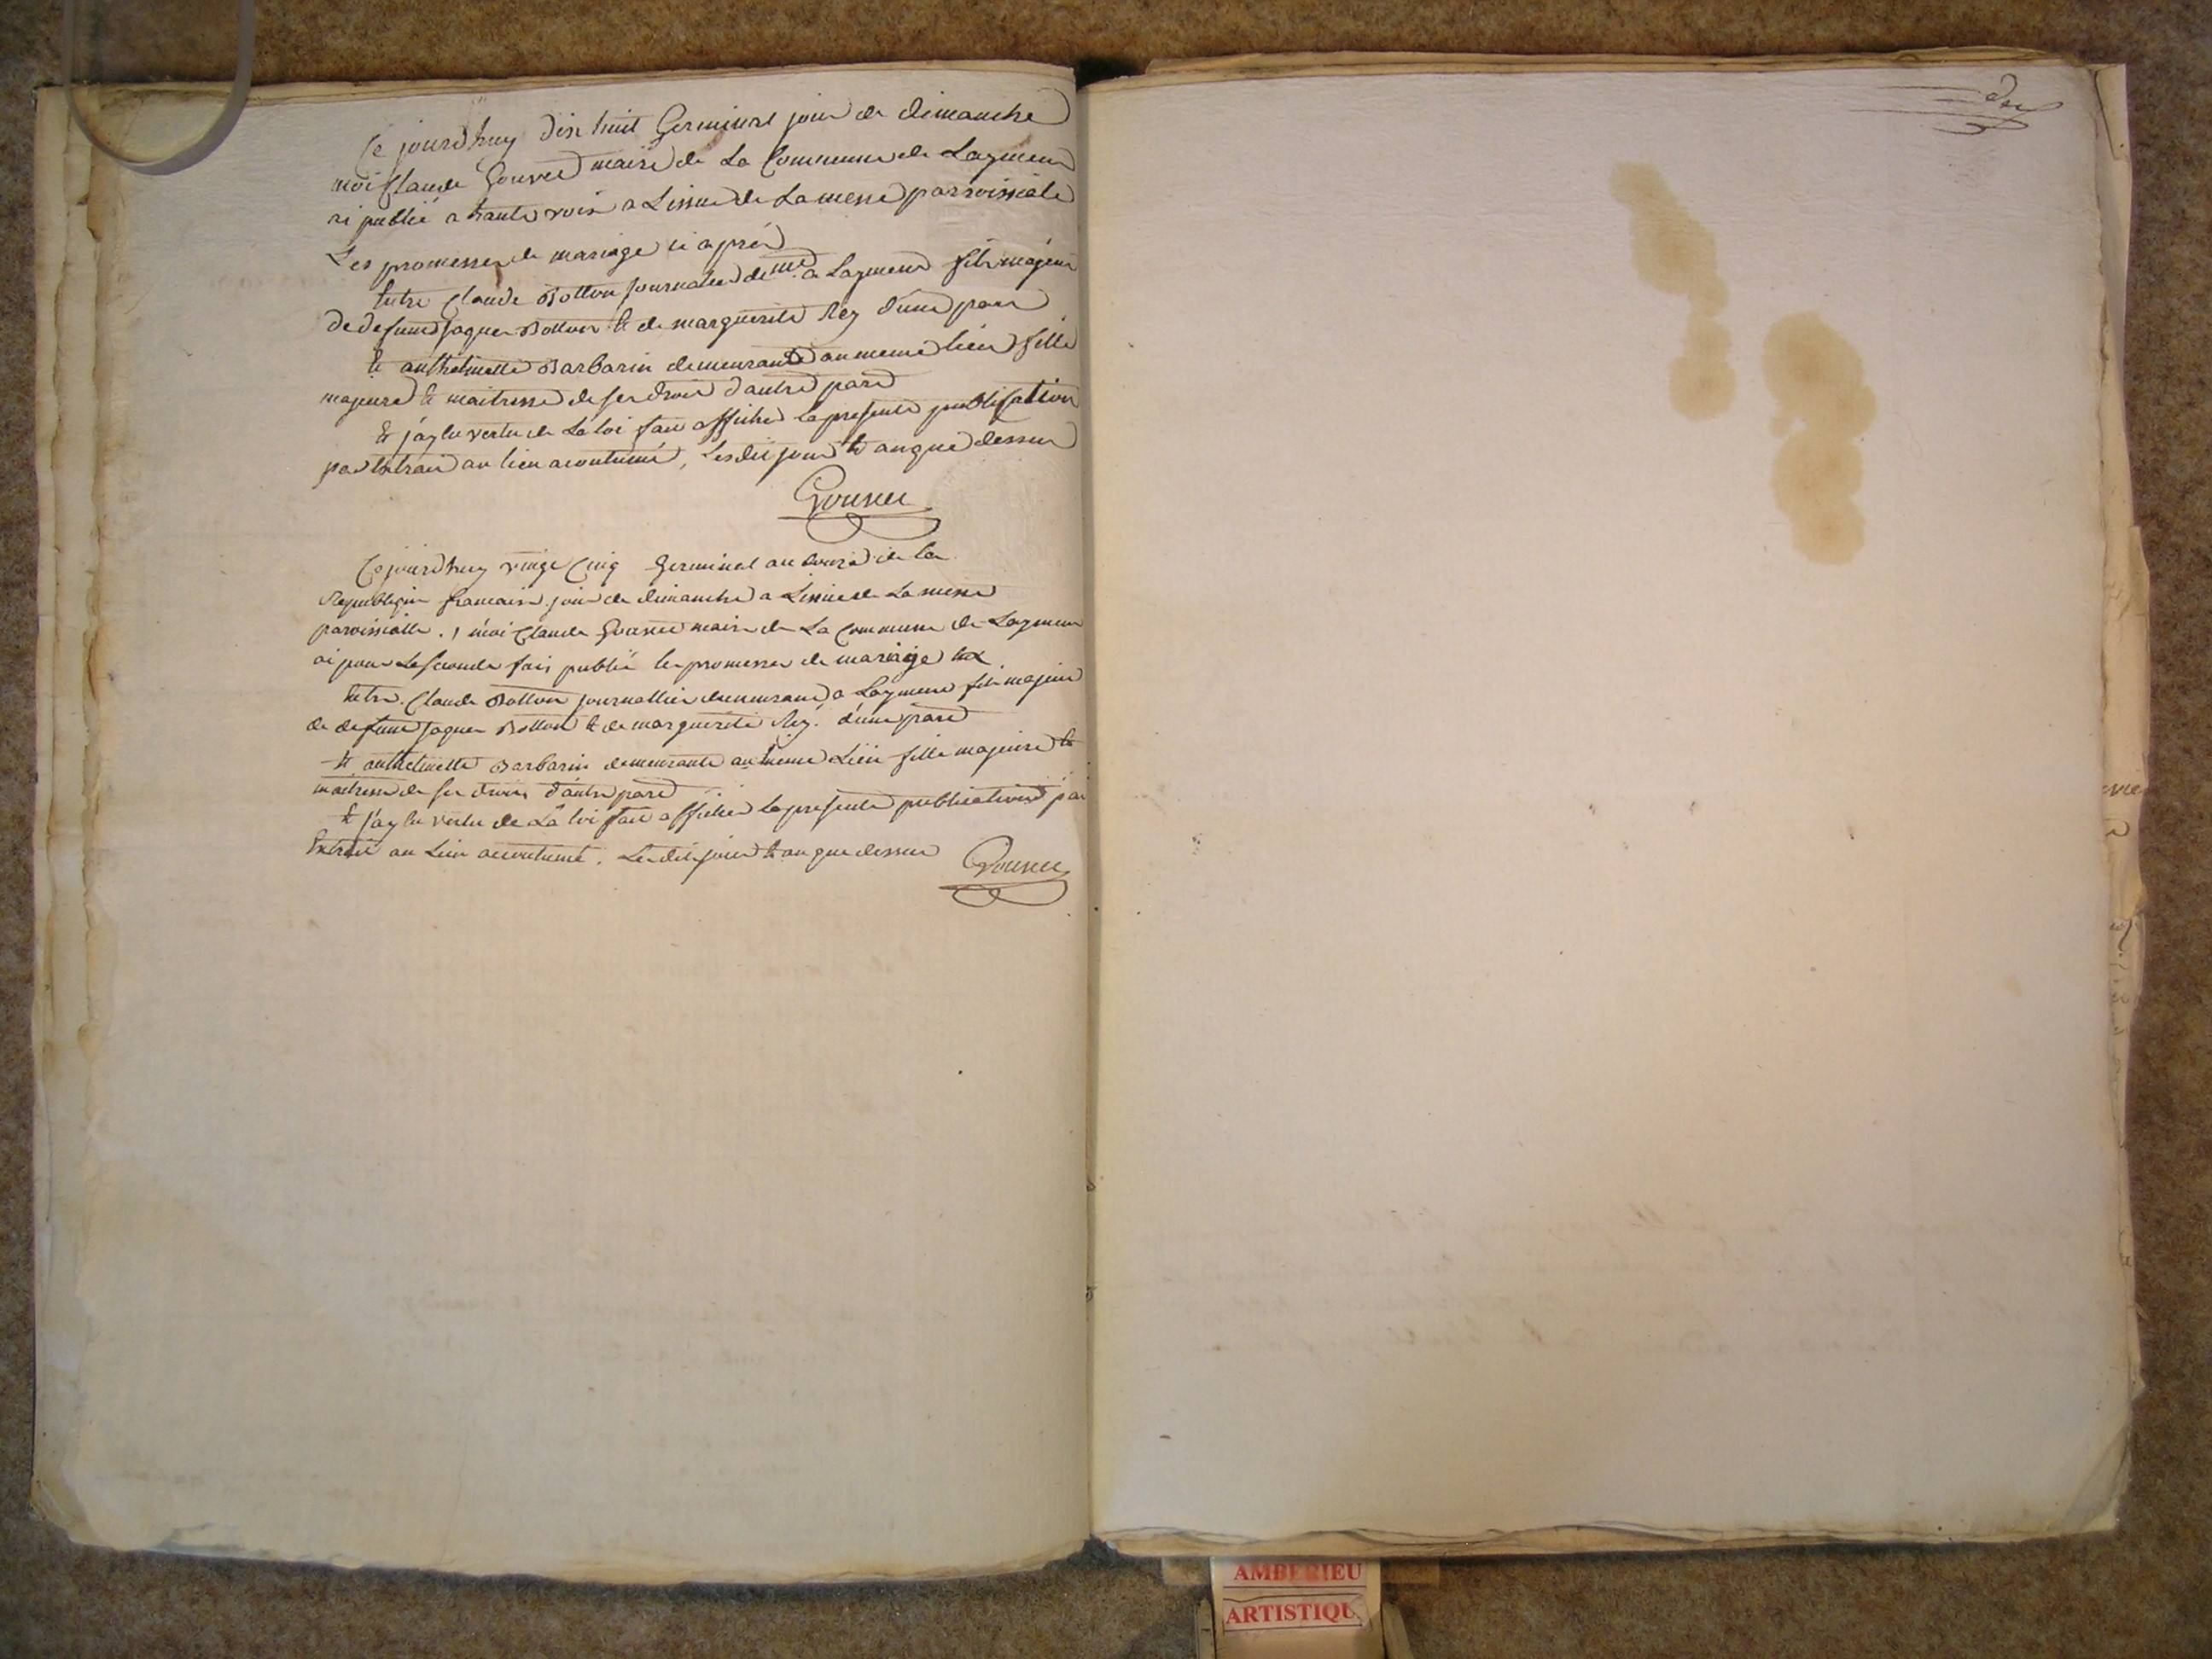 Ce jourdhuy dix huit Germinal jour de dimanche
moi Claude Gouvee maire de La Commune de Laymen
ai publié a haute voix a Lissue de La messe parroissiale
Les promesses de mariage ci après
Entre Claude Bollon journalier demt a Laymen fils majeur
de defunt jaques Bollon et de marguerite Rey d'une part
et anthelmette Barbarin demeurante au meme lieu fille
majeure et maitresse de ses droits d'autre part
Et j'ay en vertu de La loi fait afficher La presente publication
par Extrait au lieu acoutumé, Les dit jour et an que dessus
Gouvee
Ce jourdhuy vingt Cinq Germinal an douze de la
Republique francaise jour de dimanche a Lissue de La messe
paroissialle. moi Claude Gouvee maire de La Commune de Laymen
ai pour La seconde fois publié les promesses de mariage
Entre Claude Bollon journallier demeurant a Laymen fils majeur
de defunt jaques Bollon et de marguerite Rey. d'une part
Et anthelmette Barbarin demeurante au meme Lieu fille majeure et
maitresse de ses droits d'autre part
Et j'ay en vertu de La loi fait afficher La presente publication par
Extrait au Lieu acoutumé. Les dits jour et an que dessus
Gouvee
AMBERIEU
ARTISTIQU